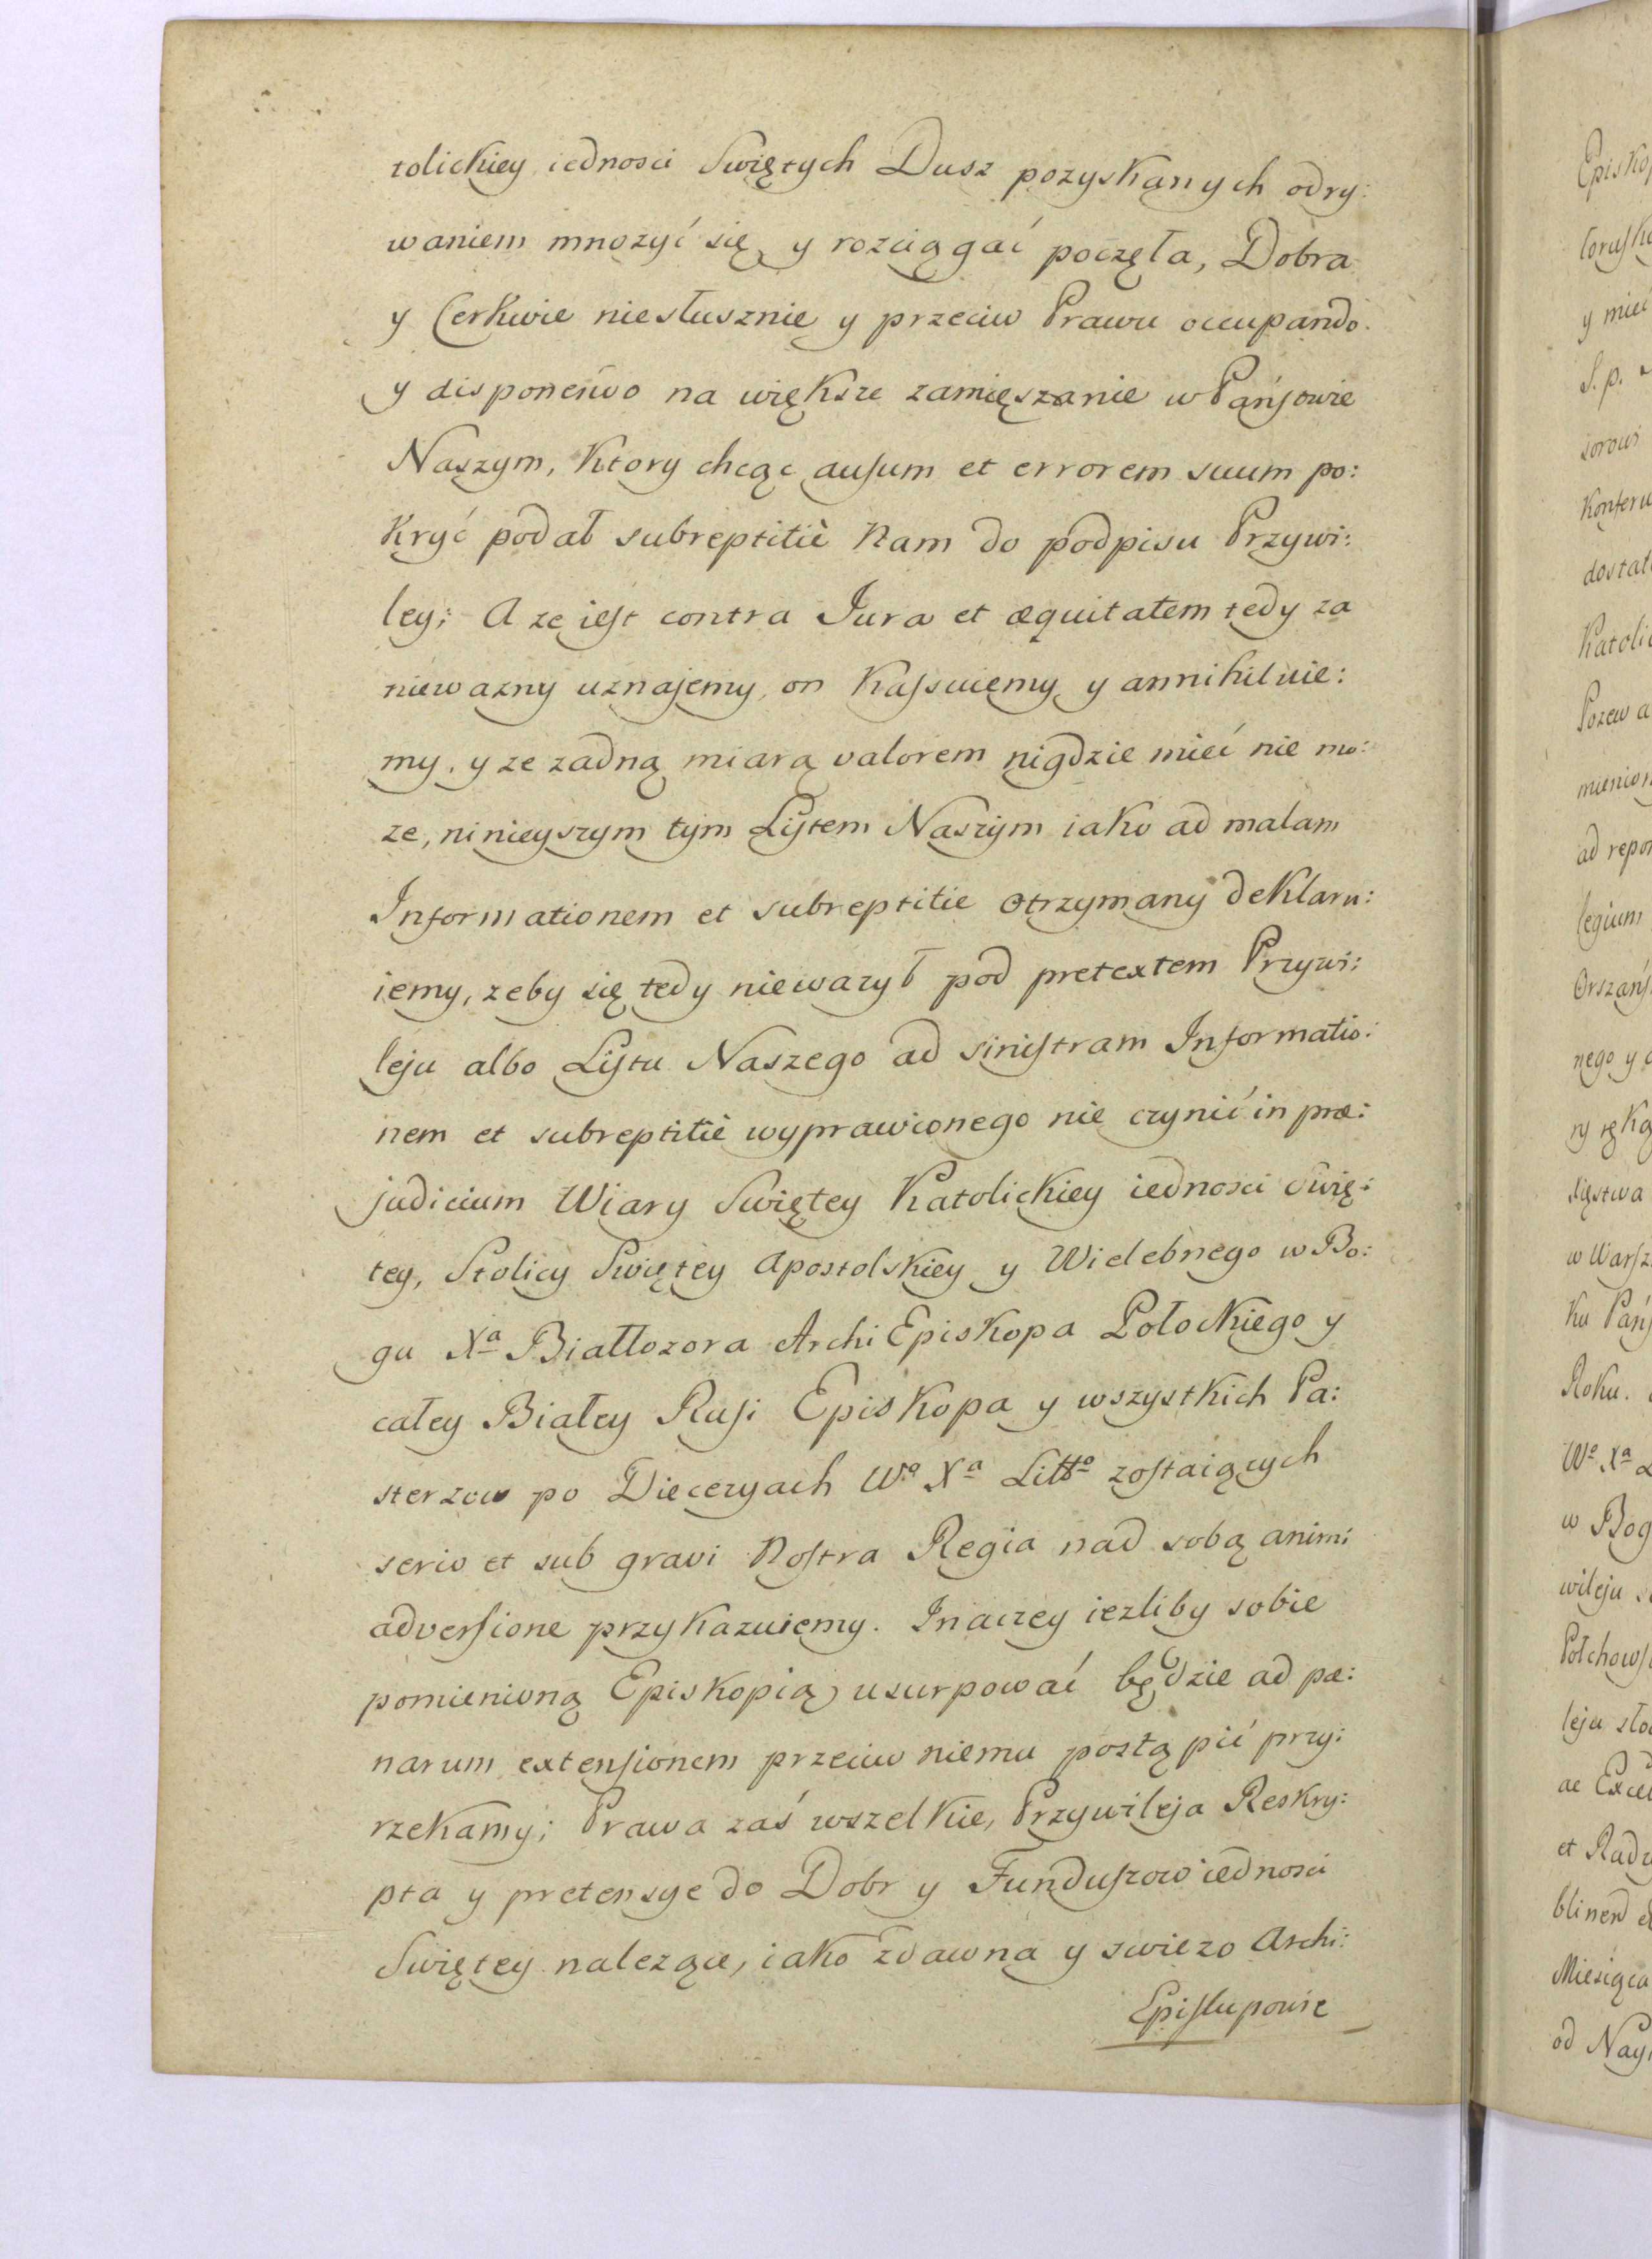 tolickiey iednosci Swiętych Dusz pozyskanych odry:
waniem mnozyć się y rozciągać poczęła, Dobra
y Cerkwie niesłusznie y przeciw Prawu occupando
y disponendo na większe zamięszanie w Pańſtwie
Naszym, Ktory chcąc auſum et errorem suum po:
Kryć podał subreptitiè Nam do podpisu Przywi:
ley; A ze ieſt contra Jura et æquitatem tedy za
niewazny uznajemy, on Kaſsuiemy y annihiluie:
my. y ze zadną miarą valorem nigdzie mieć nie mo:
ze, ninieyszym tym Liſtem Naszym iako ad malam
Informationem et subreptitie otrzymany deKlaru:
iemy, zeby się tedy niewazył pod pretextem Przywi:
leju albo Liſtu Naszego ad siniſtram Informatio:
nem et subreptitiè wyprawionego nie czynić in præ:
judicium Wiary Swiętey Katolickiey iednosci Swię:
tey, Stolicy Swiętey Apostolskiey y Wielebnego w Bo:
gu Xa Białłozora ArchiEpiskopa Połockiego y
całey Białey Ruſi Episkopa y wszystkich Pa:
sterzow po Diecezyach Wo Xa Litto zoſtaiących
serio et sub gravi Noſtra Regia nad sobą anim:
adverſione przykazuiemy. Inaczey iezliby sobie
pomienioną Episkopią usurpować będzie ad pæ:
narum extenſionem przeciw niemu postąpić przy:
rzekamy; Prawa zaś wszelkie, Przywileja Reskry:
pta y pretensye do Dobr y Funduſzow iednosci
Swiętey nalezące, iako zdawna y swiezo Archi:
Epiſkupowie
Episko
y mieć
S. p.
dostał
Pozew a
ad repor
legium
nego y
w Warſz
Ku Pańſ
Roku.
Wo Xa
w Bog
wileju
leju sło
et Rad
Miesiąca
od Nay